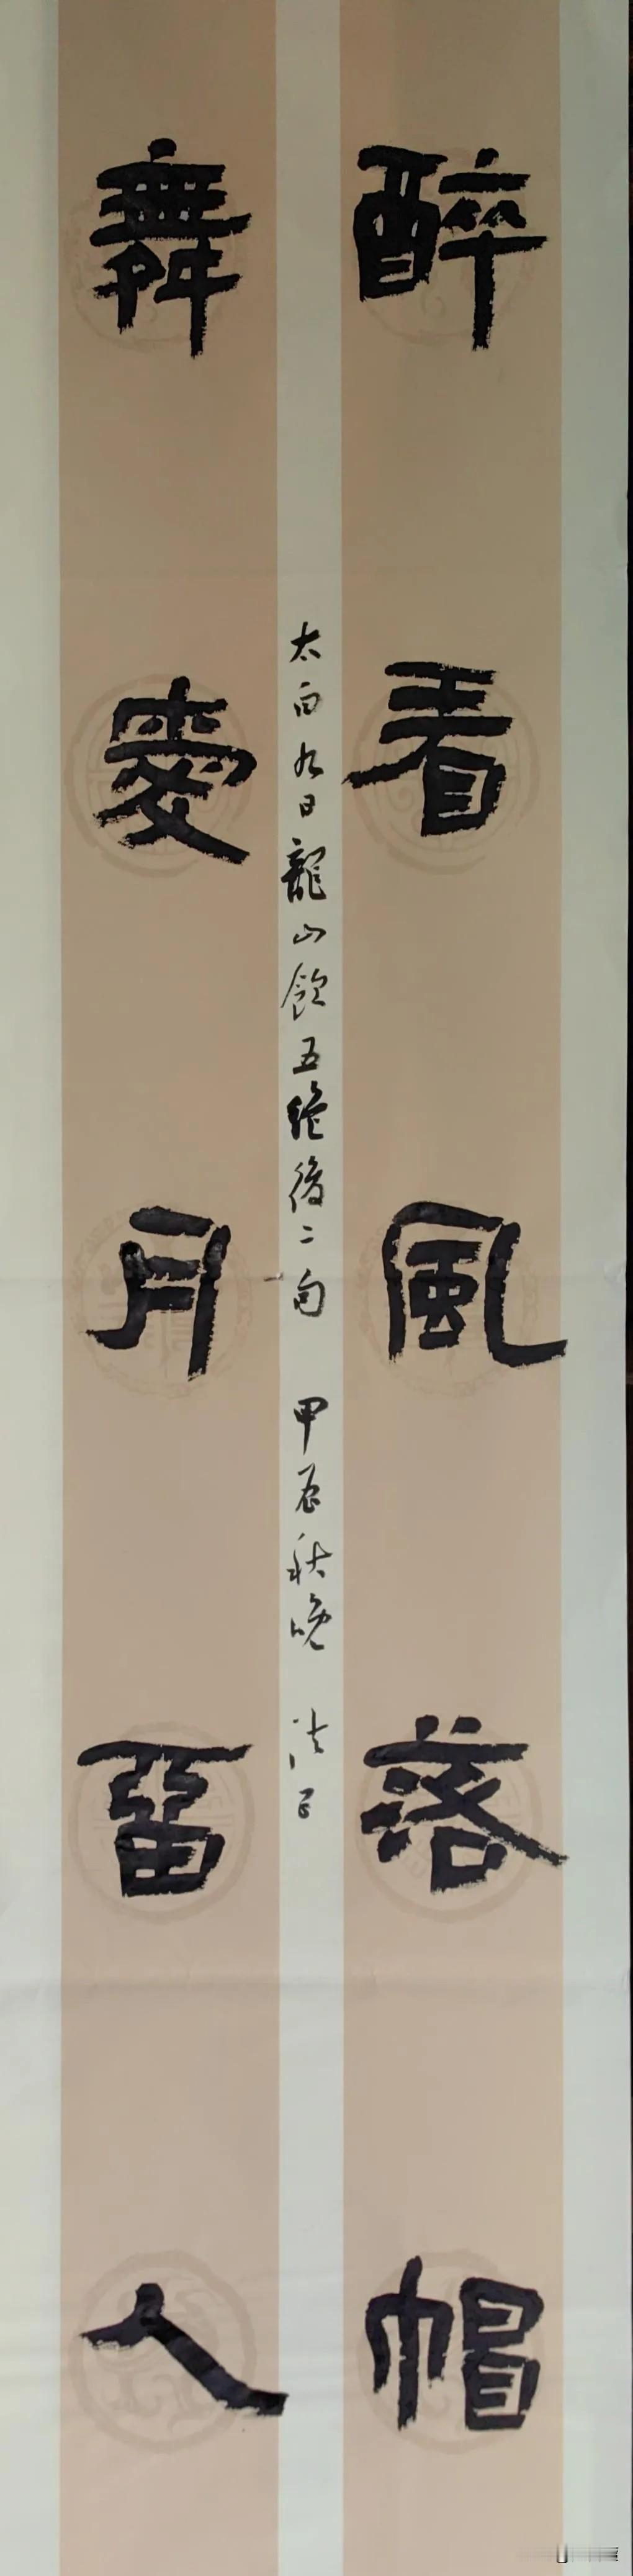 醉看風落帽
舞愛月留人
太白九日龍山飲五絕後二句 甲辰秋晚